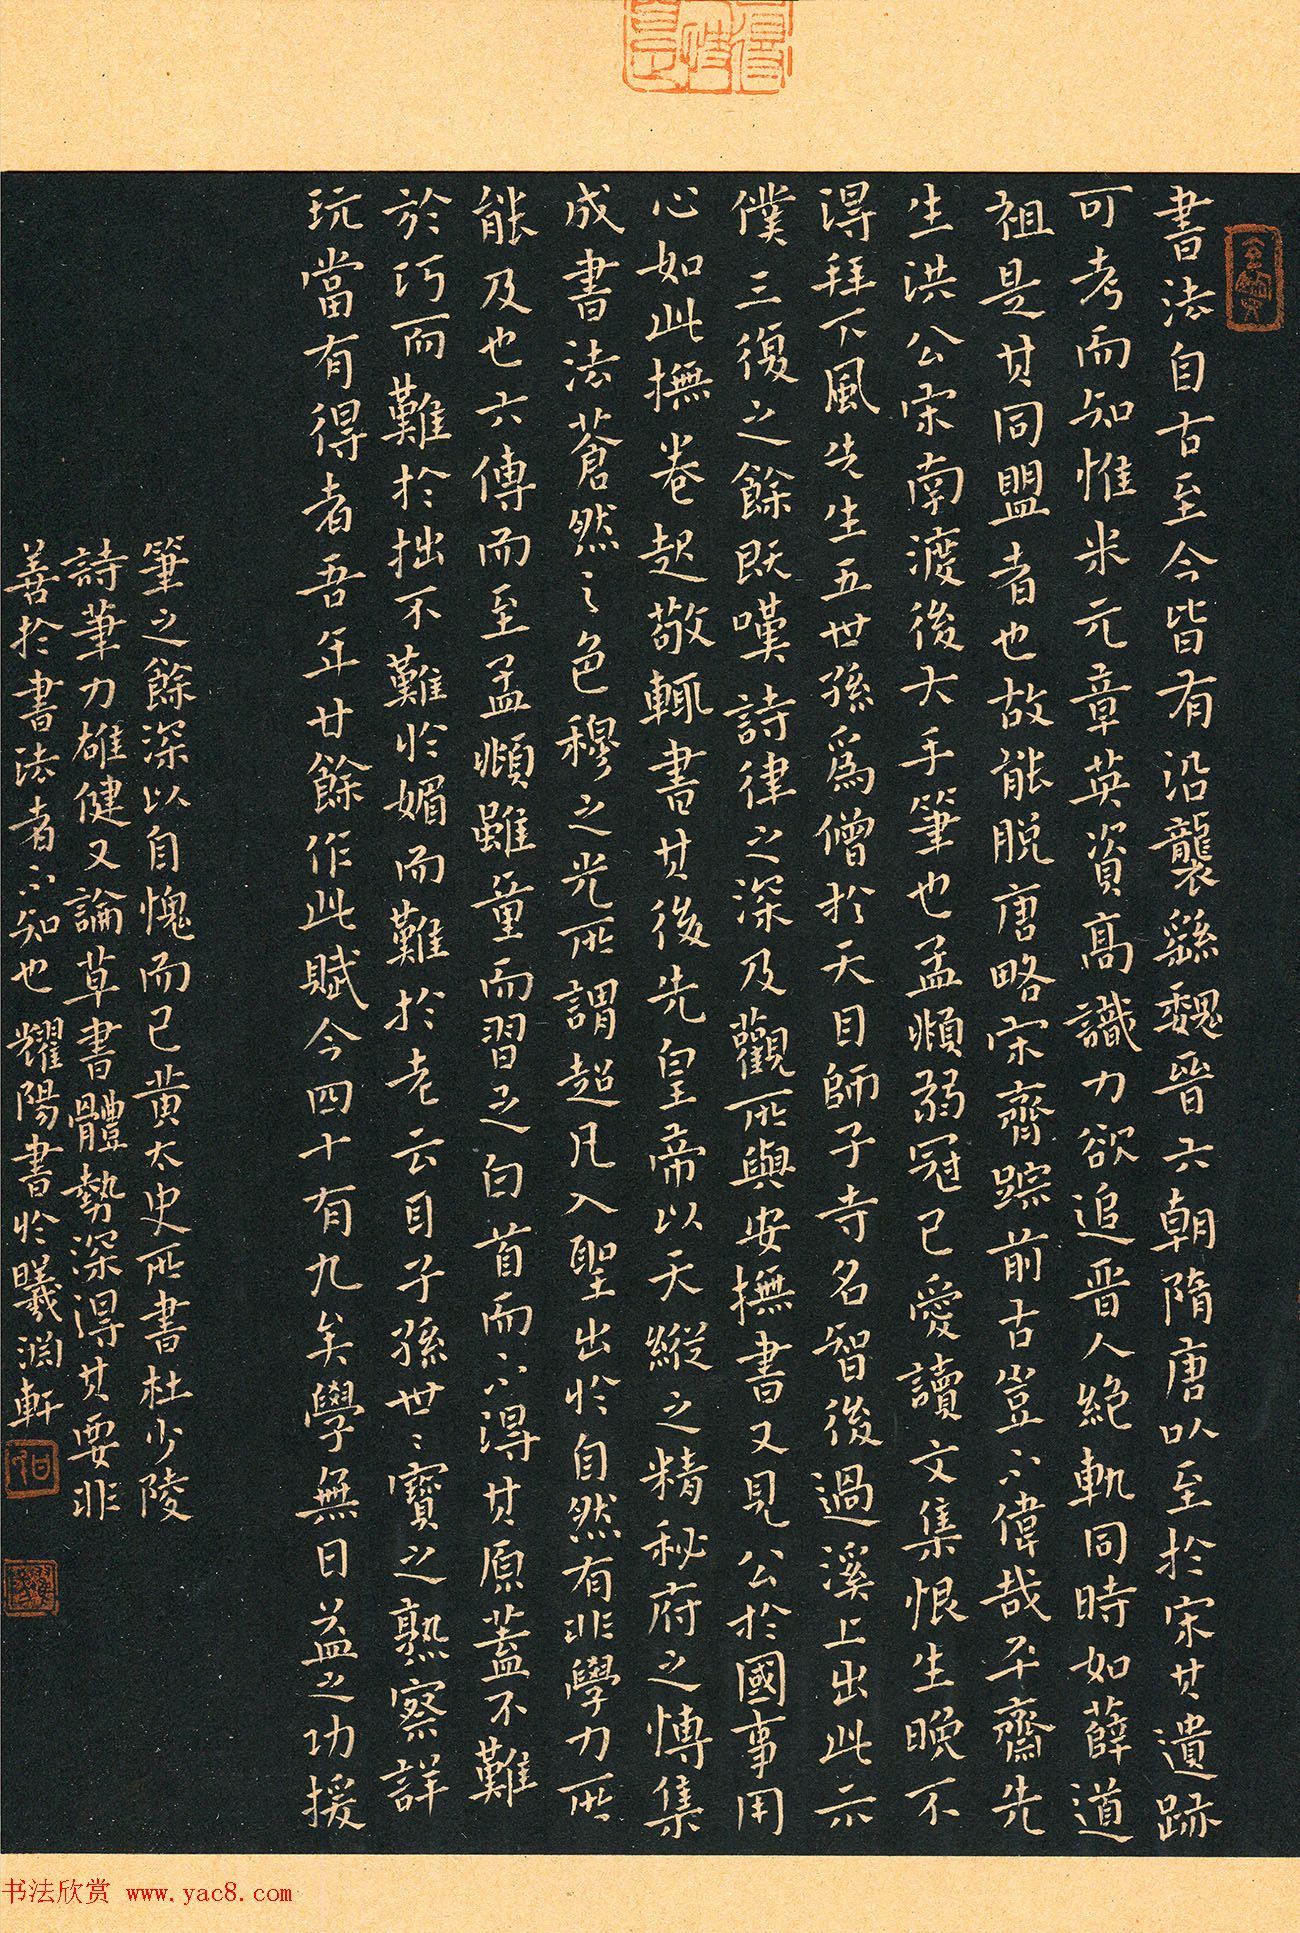 書法自古至今皆有沿襲繇魏晉六朝隋唐以至於宋其遺跡
可考而知惟米元章英資高識力欲追晋人絶軌同時如薛道
祖是其同盟者也故能脱唐略宋齊踪前古豈不偉哉平齋先
生洪公宋南渡後大手筆也孟頫弱冠已愛讀文集恨生晚不
得拜下風先生五世孫爲僧於天目師子寺名智後過溪上出此示
僕三復之餘既嘆詩律之深及觀所與安撫書又見公於國事用
心如此撫卷起敬輒書其後先皇帝以天縱之精秘府之慱集
成書法蒼然之色穆之光所謂超凡入聖出於自然有非學力所
能及也六傳而至孟頫雖童而習之白首而不得其原蓋不難
於巧而難於拙不難於媚而難於老云自子孫世々寶之熟察詳
玩當有得者吾年廿餘作此賦今四十有九矣學無日益之功援
筆之餘深以自愧而已黄太史所書杜少陵
詩筆力雄健又論草書體勢深得其要非
善於書法者不知也 耀陽書於曦淵軒
书法欣赏 www.yac8.com